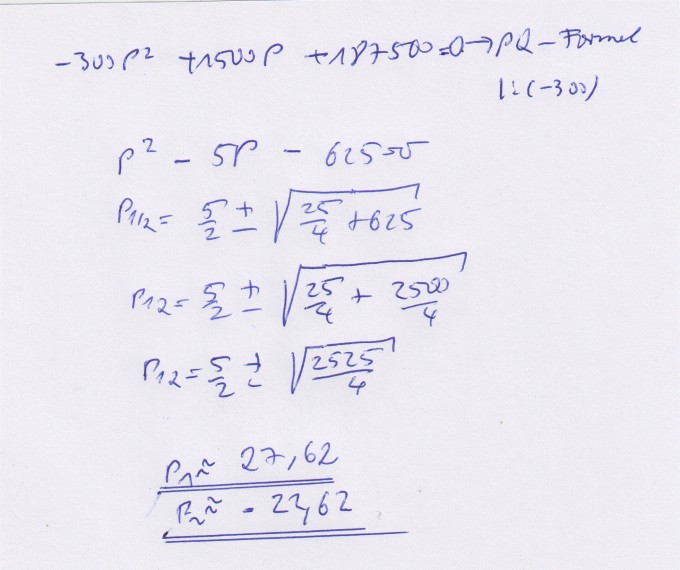 -300P² +1500P +187500=0→PQ-Formel
|:(-300)
P² - 5P - 625=0
P1/2= 5/2 ± √(25/4 +625)
P12= 5/2 ± √(25/4 + 2500/4)
P12= 5/2 ± √(2525/4)
P1≈ 27,62
P2≈ - 22,62